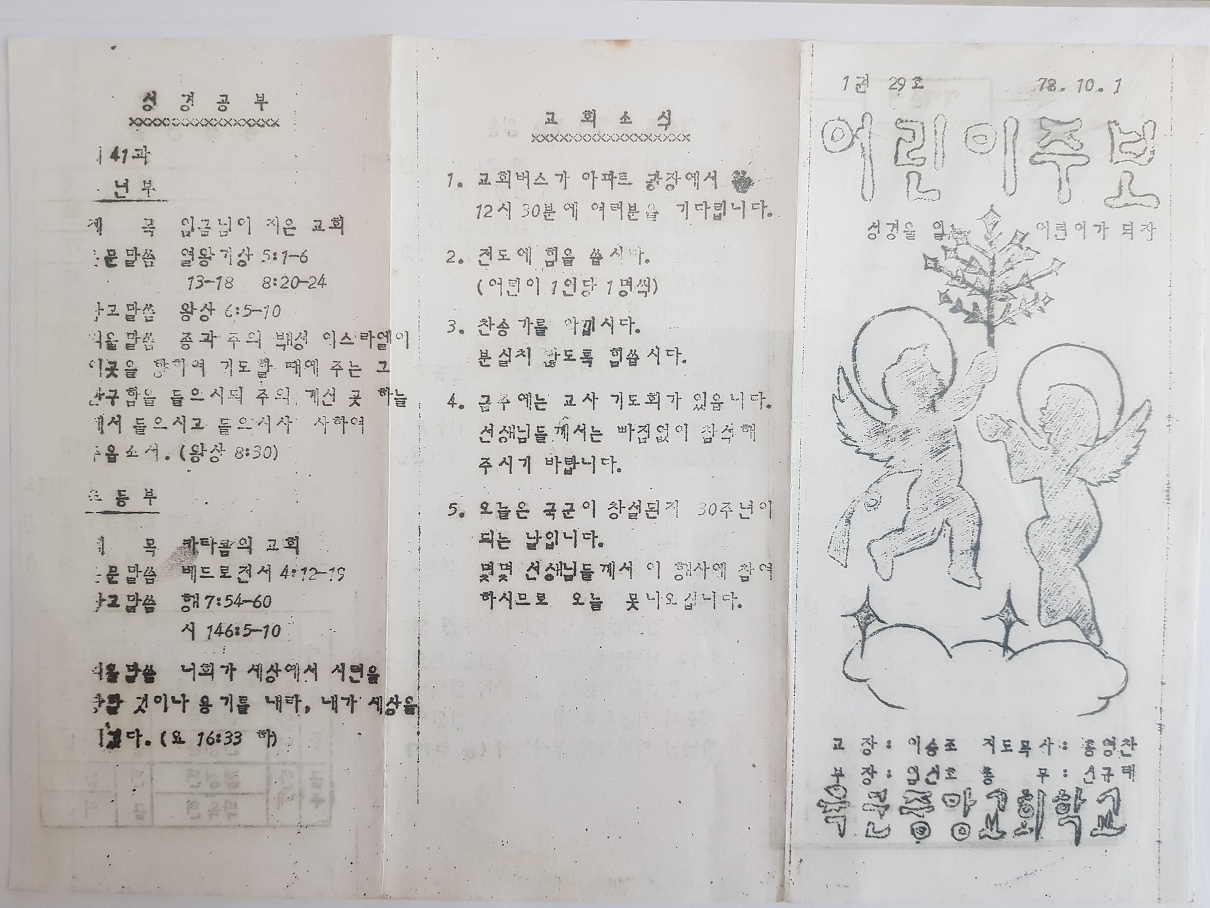 성 경 공 부
41과
년 부
제 목 임금님이 지은 교회
본문말씀 열왕기상 5:1-6
13-18 8:20-24
참고말씀 왕상 6:5-10
외울말씀 종과 주의 백성 이스라엘이
이곳을 향하여 기도할 때에 주는 그
간구함을 들으시되 주의 계신 곳 하늘
에서 들으시고 들으시사 사하여
주옵소서. (왕상 8:30)
초 등 부
제 목 의 교회
본문말씀 베드로전서 4:12-19
참고말씀 행 7:54-60
시 146:5-10
외울말씀 너희가 세상에서 시련을
당할 것이나 용기를 내라, 내가 세상을
이겼다. (요 16:33 하)
교 회 소 식
1. 교회버스가 아파트 광장에서
12시 30분에 여러분을 기다립니다.
2. 전도에 힘을 씁시다.
(어린이 1인당 1명씩)
3. 찬송가를 아낍시다.
분실치 않도록 힘씁시다.
4. 금주에는 교사 기도회가 있읍니다.
선생님들께서는 빠짐없이 참석해
주시기 바랍니다.
5. 오늘은 국군이 창설된지 30주년이
되는 날입니다.
몇몇 선생님들께서 이 행사에 참여
하시므로 오늘 못나오십니다.
1권 29호 78. 10. 1
어린이주보
성경을 어린이가 되자
교 장 : 이승조 지도목사 : 홍영찬
부 장 : 임선호 총 무 : 선규태
중앙교회학교